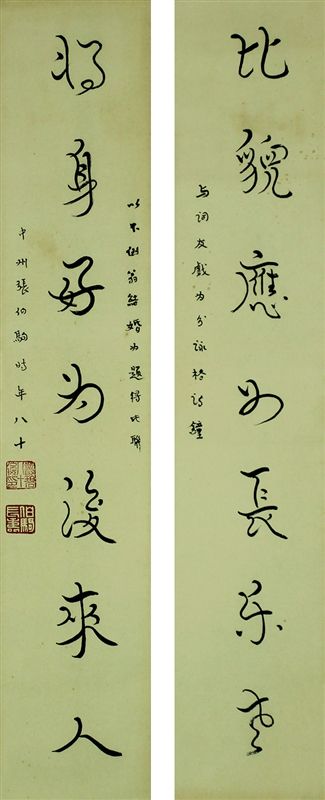 比貌應如長樂老
与詞友戲为分詠格詩鐘
以不倒翁結婚为題得此聯
將身好为後來人
中州張伯駒时年八十